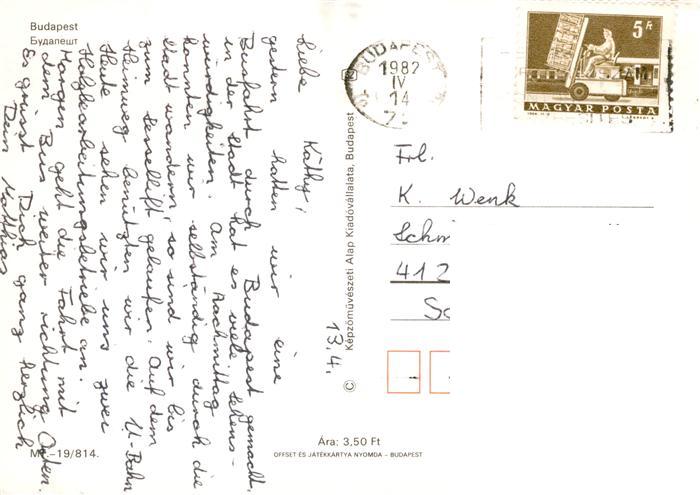 Budapest
Будапешт
13.4.
Liebe Käthy,
gestern hatten wir eine
Busfahrt durch Budapest gemacht.
in der Stadt hat es viele Sehens-
würdigkeiten. Am Nachmittag
konnten wir selbständig durch die
Stadt wandern, so sind wir bis
zum Sessellift gelaufen. Auf dem
Heimweg benützten wir die U-Bahn
Heute sehen wir uns zwei
Holzbearbeitungsbetriebe an.
Morgen geht die Fahrt mit
dem Bus weiter richtung Osten.
Es grüsst Dich ganz herzlich
Dein Matthias
MF.-19/814.
© Képzőművészeti Alap Kiadóvállalata, Budapest
Ára: 3,50 Ft
OFFSET ÉS JÁTÉKKÁRTYA NYOMDA – BUDAPEST
BUDAPEST
1982
IV
14
5 Ft
MAGYAR POSTA
Frl.
K. Wenk
Schm
412
Sc